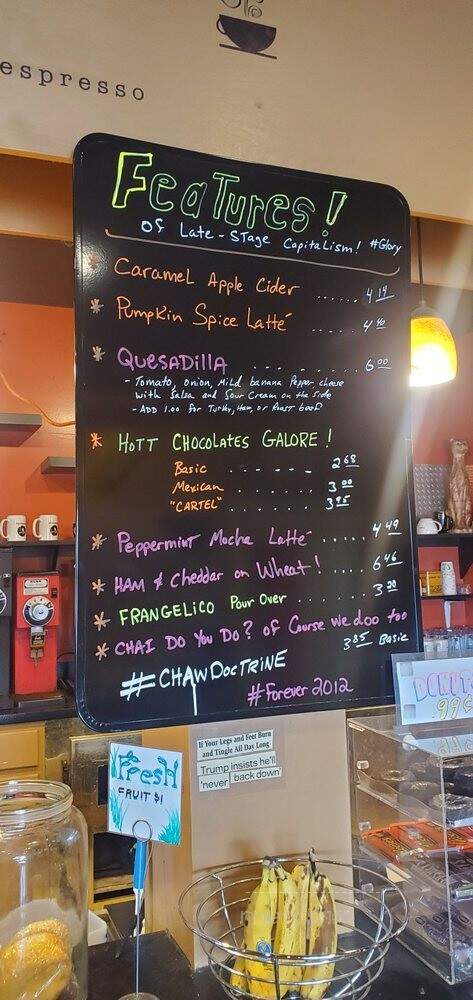 espresso
Features!
of Late-Stage Capitalism! #Glory
* Caramel Apple Cider ...... 4 19
* Pumpkin Spice Latté .... 4 40
* Quesadilla - - - - - - - - 6 00
- Tomato, onion, Mild banana Pepper cheese
with Salsa and Sour Cream on the side
- ADD 1.00 for Turky, Ham, or Roast beef
* Hott Chocolates Galore!
Basic - - - - . . 2 68
Mexican . . . . . 3 00
"CARTEL" . . . . . . 3 95
* Peppermint Mocha Latté ..... 4 49
* HAM & Cheddar on Wheat! .... 6 46
* FRANGELICO Pour Over ........ 3 20
* CHAI DO YOU DO? of Course we doo too
3 85 Basic
#CHAWDOCTRINE
#Forever 2012
DONUTS
99¢
Fresh
FRUIT $1
If Your Legs and Feet Burn
and Tingle All Day Long
Trump insists he'll
'never back down'